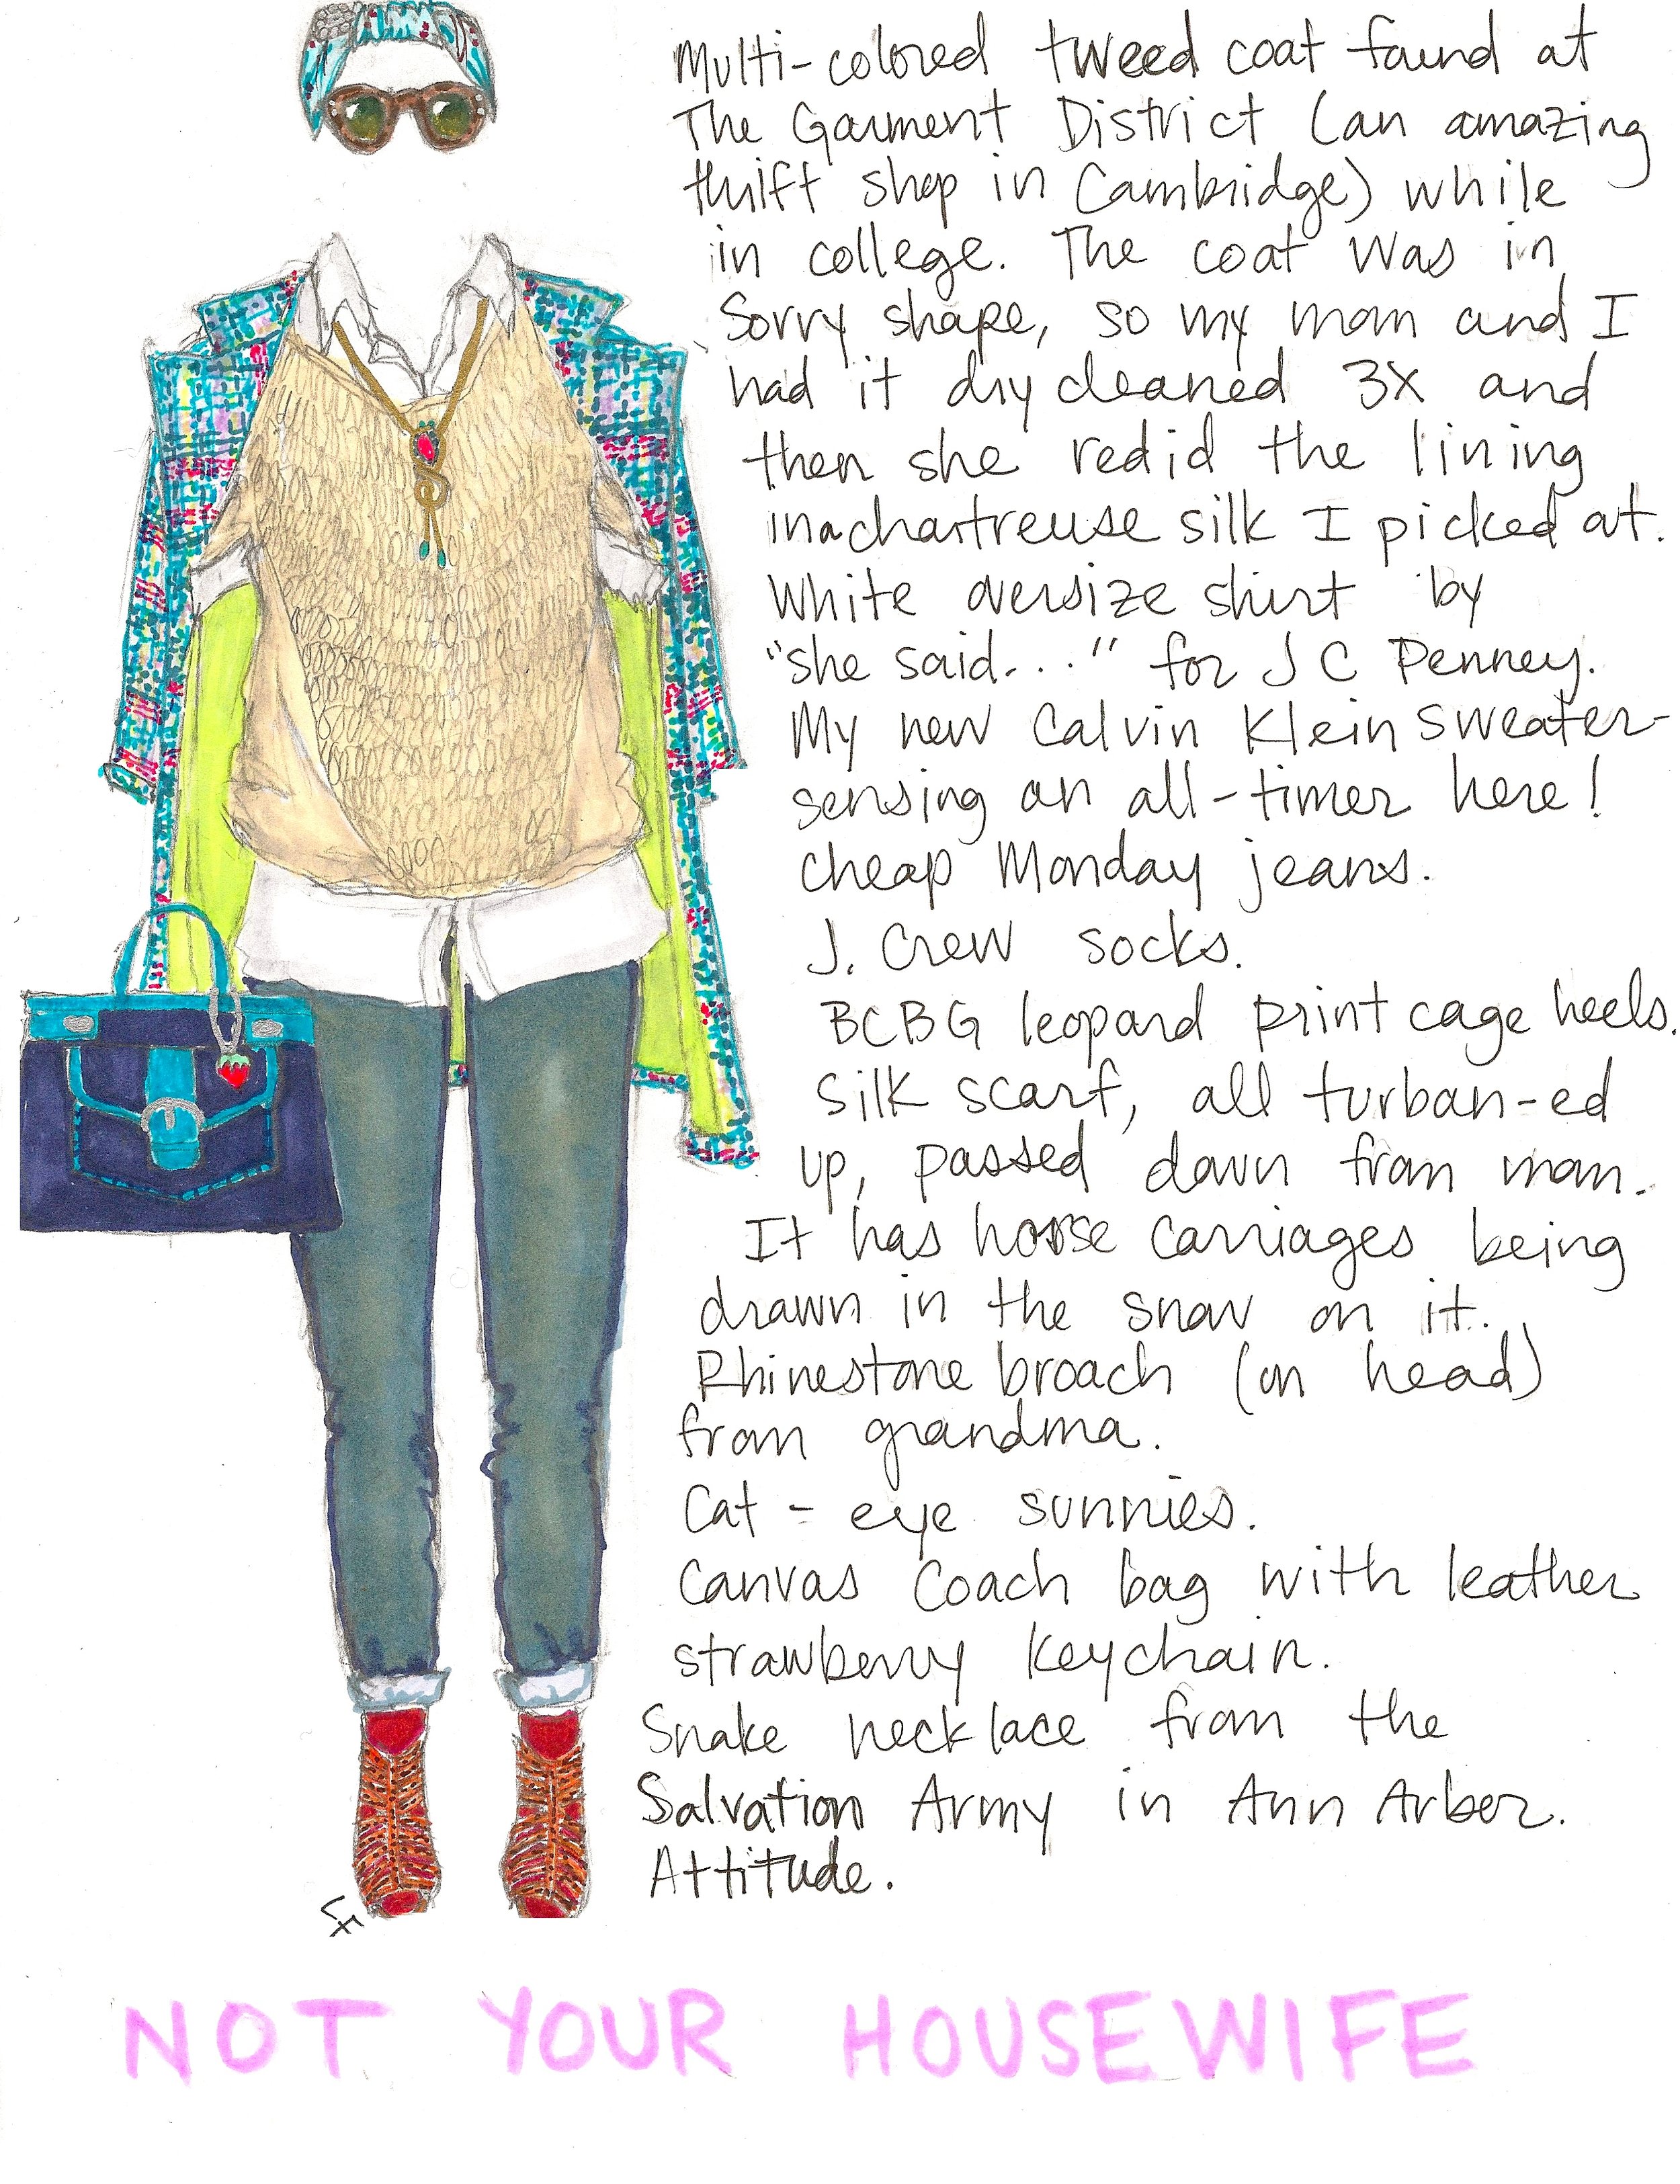 Multi-colored tweed coat found at
The Garment District (an amazing
thrift shop in Cambridge) while
in college. The coat was in
sorry shape, so my mom and I
had it dry cleaned 3X and
then she redid the lining
in a chartreuse silk I picked at.
White oversize shirt by
"she said..." for J C Penney.
My new Calvin Klein sweater-
sensing an all-timer here!
Cheap Monday jeans.
J. Crew socks.
BCBG leopard print cage heels.
Silk scarf, all turban-ed
up, passed down from mom.
It has horse carriages being
drawn in the snow on it.
Rhinestone broach (on head)
from grandma.
Cat-eye sunnies.
Canvas Coach bag with leather
strawberry keychain.
Snake necklace from the
Salvation Army in Ann Arbor.
Attitude.
LF
NOT YOUR HOUSEWIFE